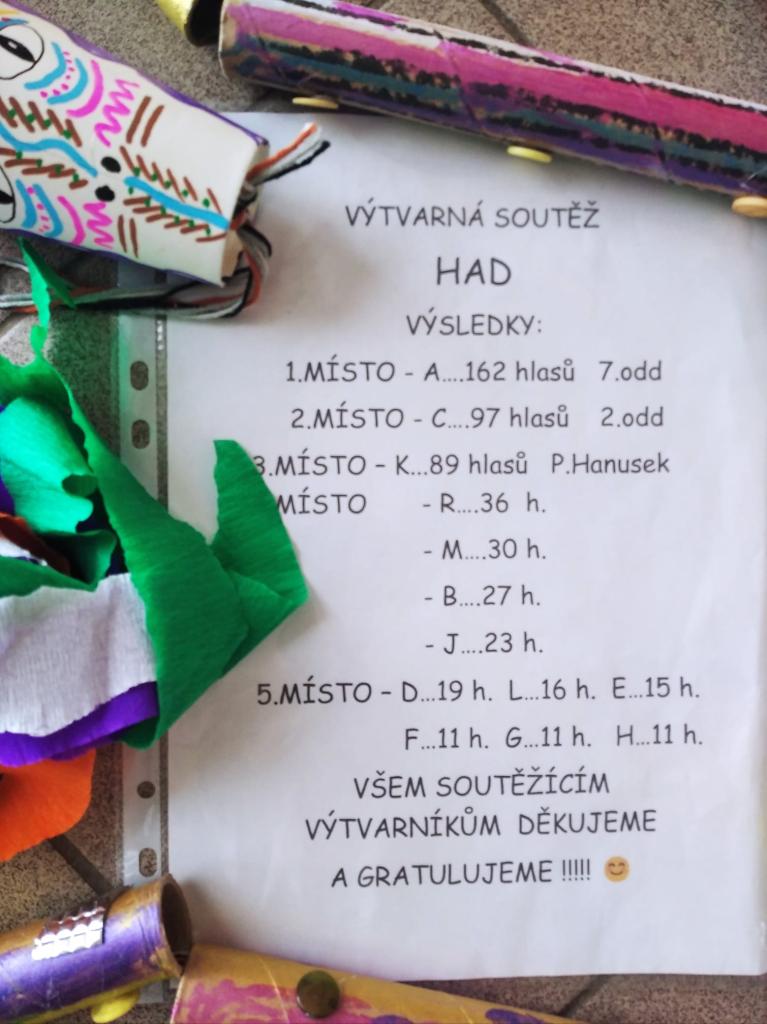 VÝTVARNÁ SOUTĚŽ
HAD
VÝSLEDKY:
1.MÍSTO - A....162 hlasů 7.odd
2.MÍSTO - C....97 hlasů 2.odd
3.MÍSTO – K...89 hlasů P.Hanusek
MÍSTO - R....36 h.
- M....30 h.
- B....27 h.
- J....23 h.
5.MÍSTO – D...19 h. L...16 h. E...15 h.
F...11 h. G...11 h. H...11 h.
VŠEM SOUTĚŽÍCÍM
VÝTVARNÍKŮM DĚKUJEME
A GRATULUJEME !!!!! 😊